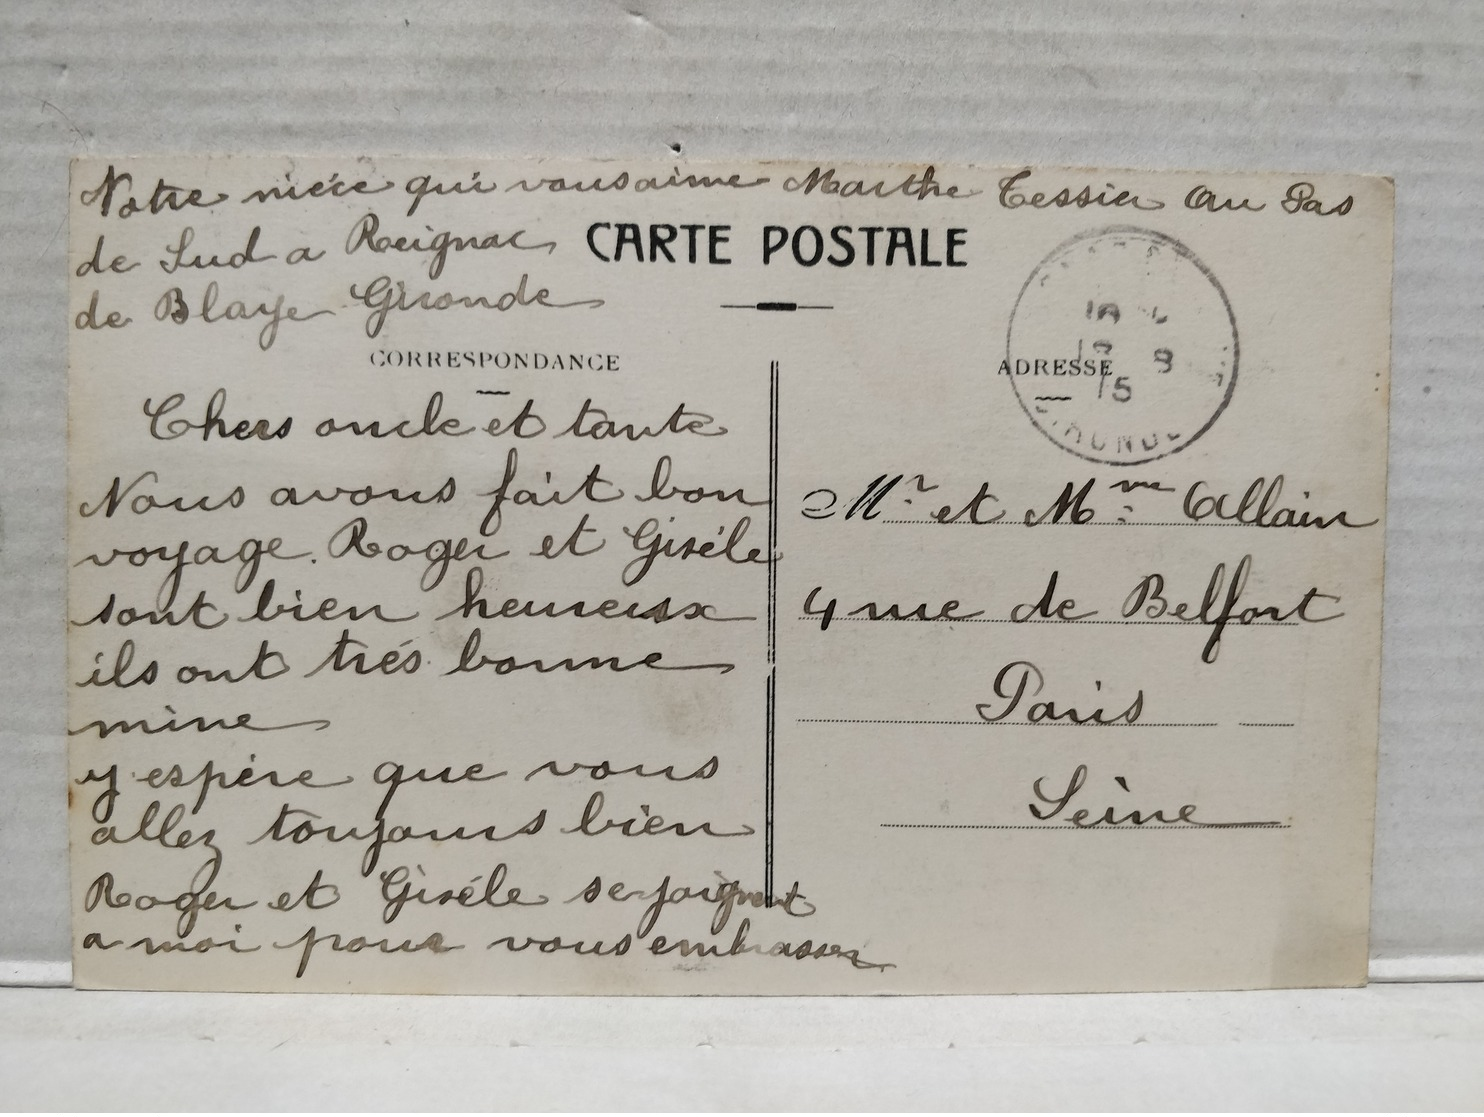 Notre niéce qui vous aime Marthe Tessier au Pas
de Sud a Reignac
de Blaye Gironde
CARTE POSTALE
CORRESPONDANCE
ADRESSE
15
GIRONDE
Chers oncle et tante
Nous avons fait bon
voyage. Roger et Giséle
sont bien heureux
ils ont trés bonne
mine
y espère que vous
allez toujours bien
Roger et Giséle se joignent
a moi pour vous embrasser
Mr et Mme Allain
4 rue de Belfort
Paris
Seine